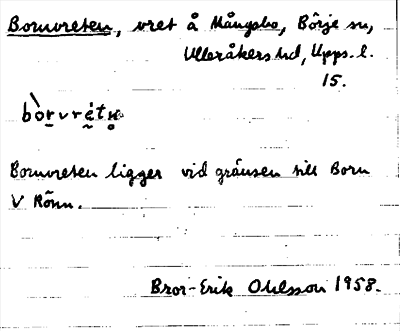 Bornvreten, vret å Mångsbo, Börje sn,
Ulleråkers hd, Upps. l.
15.
bòrvrétn̥
Bornvreten ligger vid gränsen till Born
V Rönn.
Bror-Erik Ohlsson 1958.